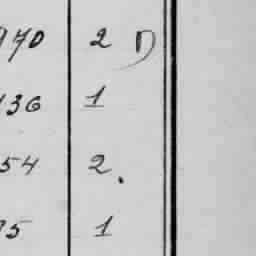 970 2 D
136 1
54 2.
75 1